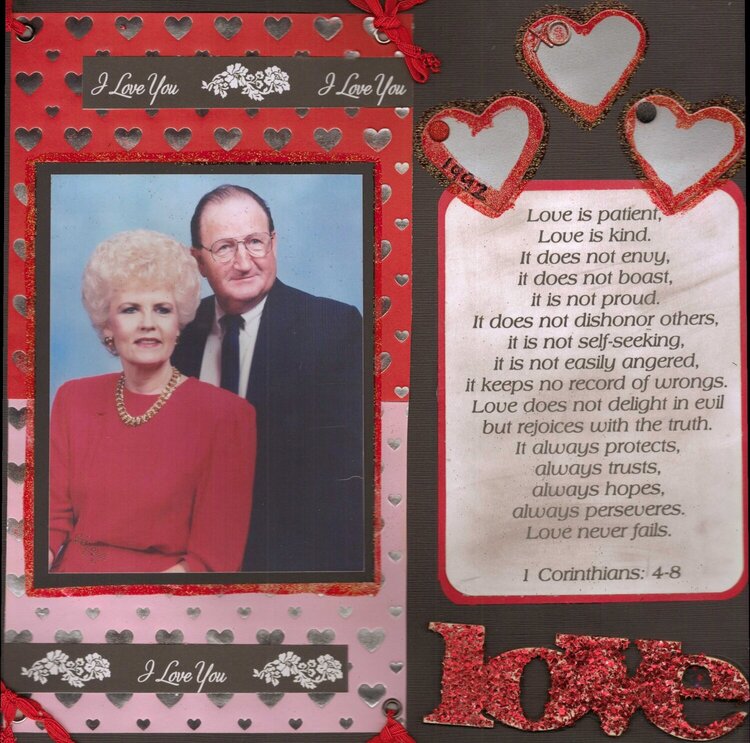 I Love You
I Love You
XO
1992
Love is patient,
Love is kind.
It does not envy,
it does not boast,
it is not proud.
It does not dishonor others,
it is not self-seeking,
it is not easily angered,
it keeps no record of wrongs.
Love does not delight in evil
but rejoices with the truth.
It always protects,
always trusts,
always hopes,
always perseveres.
Love never fails.
1 Corinthians: 4-8
love
I Love You